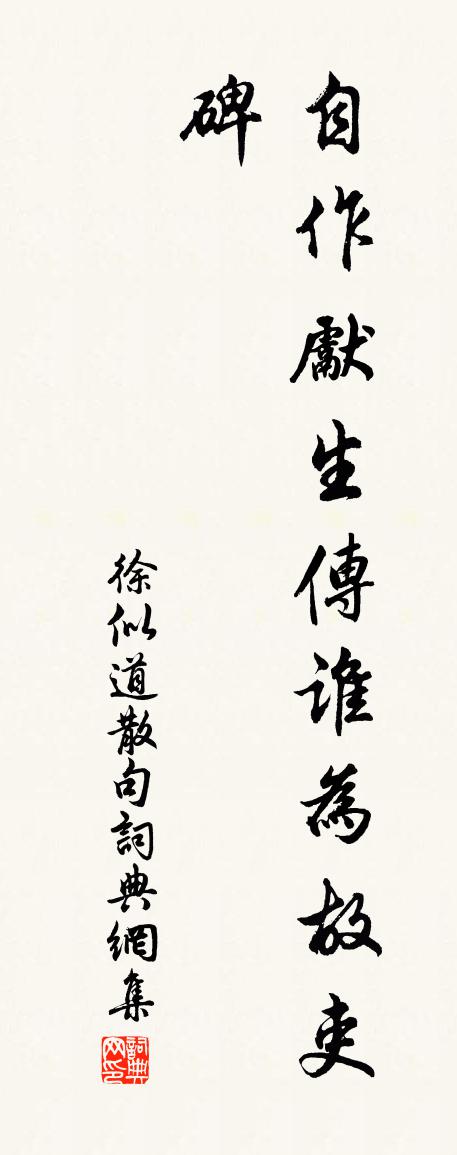 自作獻生傳誰為故吏
碑
徐似道散句詞典網集
詞典网印